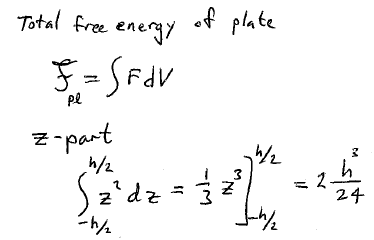 Total free energy of plate
F_pl = ∫ F dV
z-part
∫_{-h/2}^{h/2} z² dz = 1/3 z³]_{-h/2}^{h/2} = 2 h³/24